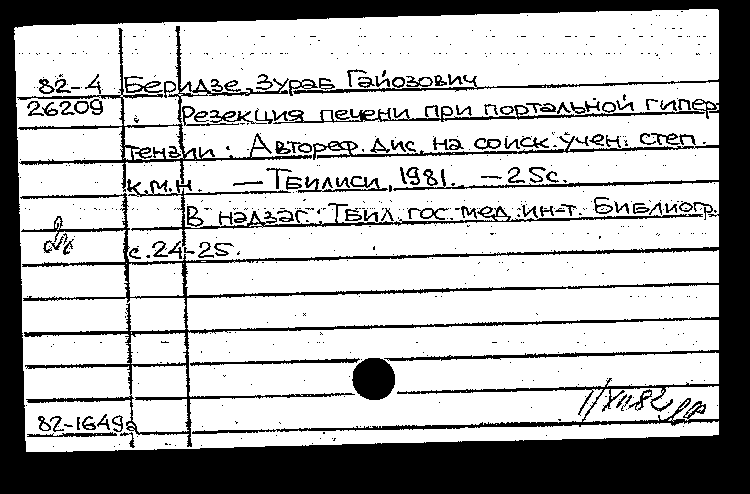 82-4 Беридзе, Зураб Гайозович
26209 Резекция печени при портальной гипер
тензии: Автореф. дис. на соиск. учен. степ.
к.м.н. — Тбилиси, 1981. — 25с.
В надзаг: Тбил. гос. мед. ин-т. Библиогр.
с.24-25.
82-1649а